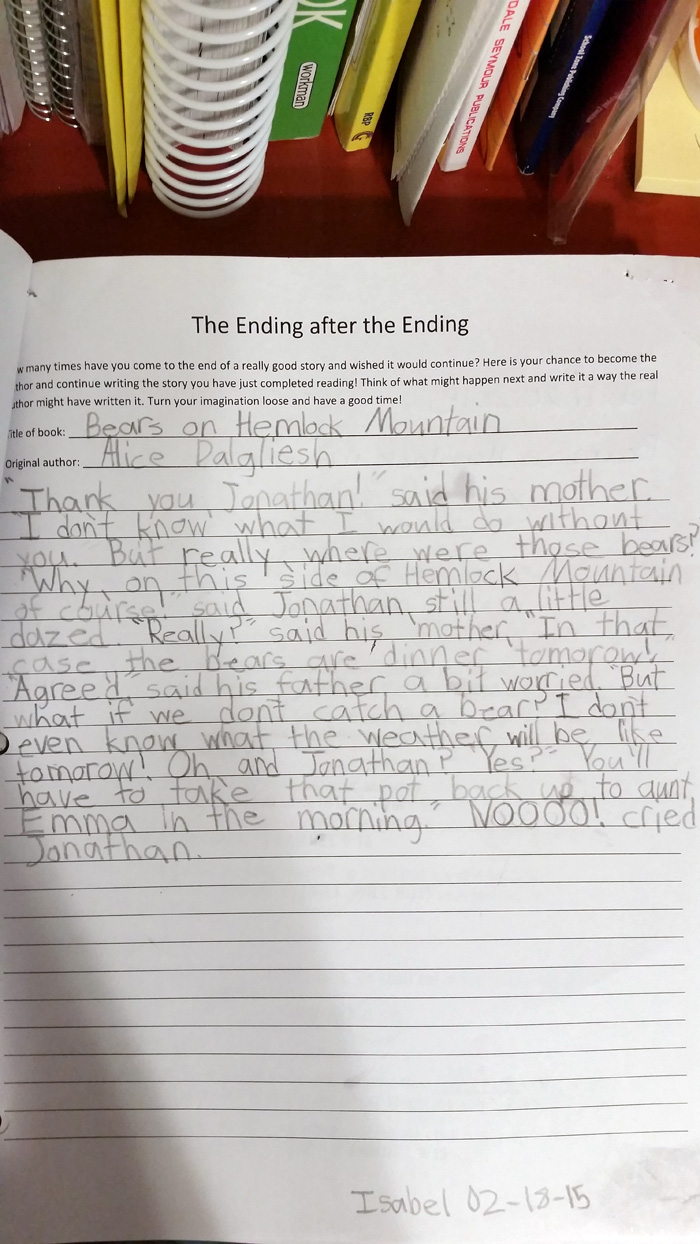 OK
workman
RBP
DALE SEYMOUR PUBLICATIONS
School Zone Publishing Company
The Ending after the Ending
w many times have you come to the end of a really good story and wished it would continue? Here is your chance to become the
thor and continue writing the story you have just completed reading! Think of what might happen next and write it a way the real
uthor might have written it. Turn your imagination loose and have a good time!
itle of book: Bears on Hemlock Mountain
Original author: Alice Dalgliesh
"Thank you Jonathan!" said his mother.
"I don't know what I would do without
you. But really, where were those bears?"
"Why, on this side of Hemlock Mountain
of course!" said Jonathan, still a little
dazed. "Really?" said his mother, "In that
case the bears are dinner tomorow!"
"Agreed," said his father a bit worried. "But
what if we don't catch a bear? I don't
even know what the weather will be like
tomorow! Oh, and Jonathan? Yes?" You'll
have to take that pot back up to aunt
Emma in the morning." NOOOO! cried
Jonathan.
Isabel 02-18-15